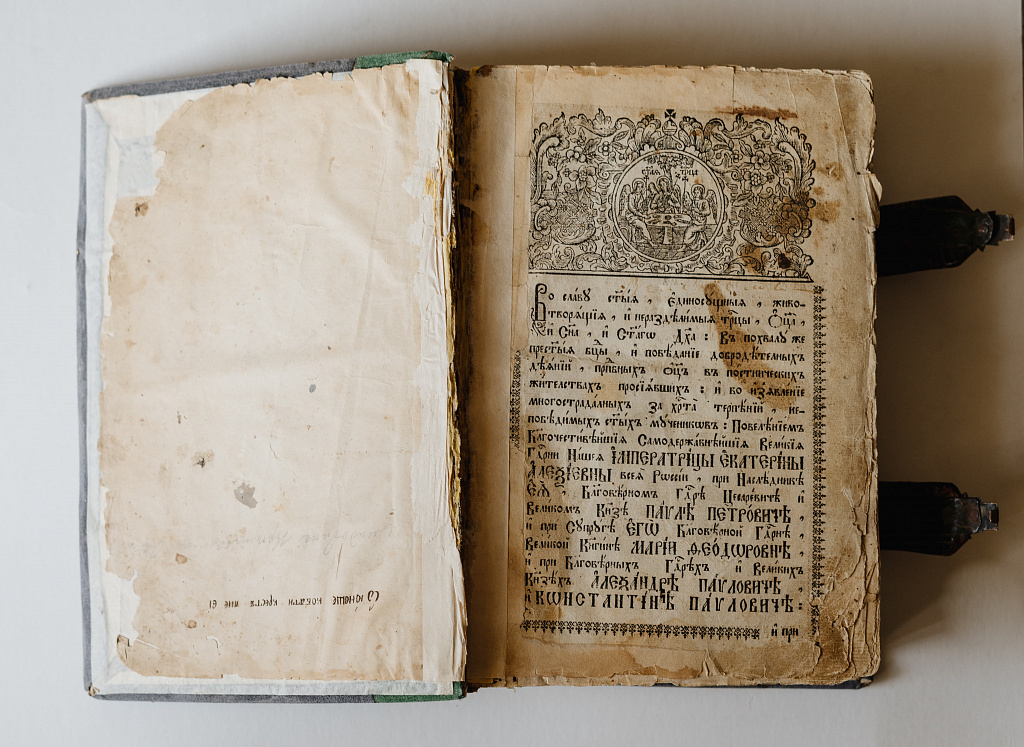 ст҃ая трⷪ҇ца
Во славу ст҃ы́ѧ , є҆диносꙋ́щныѧ , живо-
творѧ́щїѧ , и҆ нераздѣ́лимыѧ трⷪ҇цы , Ѻ҆ц҃а̀ ,
и҆ Сн҃а , и҆ Ст҃а́гѡ Дх҃а : Въ похвалꙋ̀ же
прест҃ы́ѧ бцⷣы , и҆ повѣ́данїе добродѣ́телныхъ
дѣѧ́нїй , прпⷣбныхъ ѻ҆ц҃ъ въ по́стническихъ
жи́телствахъ просїѧ́вшихъ : и҆ во и҆з̾ѧвле́нїе
многострада́лныхъ за хрⷭ҇та̀ терпѣ́нїй , не-
побѣди́мыхъ ст҃ы́хъ мꙋ́ченикѡвъ : Повелѣ́нїемъ
Бл҃гочести́вѣйшїѧ Самодержа́внѣйшїѧ Вели́кїѧ
Гдⷭ҇рни На́шеѧ І҆МПЕРАТРИ́ЦЫ Є҆КАТЕРІ́НЫ
А҆ЛЕѮІ́ЕВНЫ всеѧ̀ Рѡссі́и , при Наслѣ́дникѣ
Є҆Ѧ̀ , Бл҃говѣ́рномъ Гдⷭ҇рѣ Цесаре́вичѣ и҆
Вели́комъ Кн҃зѣ ПА́ѴЛѢ ПЕТРО́ВИЧѢ ,
и҆ при Сꙋпрꙋ́гѣ Є҆ГѠ̀ Бл҃говѣ́рной Гдⷭ҇рнѣ ,
Вели́кой Кн҃ги́нѣ МАРІ́И Ѳ҆ЕО́ДѠРОВНѢ ,
и҆ при Бл҃говѣ́рныхъ Гдⷭ҇рѣхъ и҆ Вели́кихъ
Кн҃зѣхъ А҆ЛЕѮА́НДРѢ ПА́ѴЛОВИЧѢ ,
и҆ КѠНСТАНТІ́НѢ ПА́ѴЛОВИЧѢ :
и҆ при